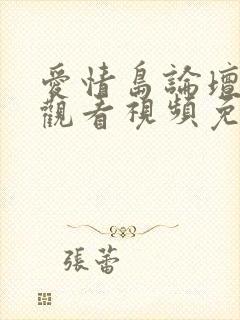 愛情島論壇
觀看視頻免
張蕾